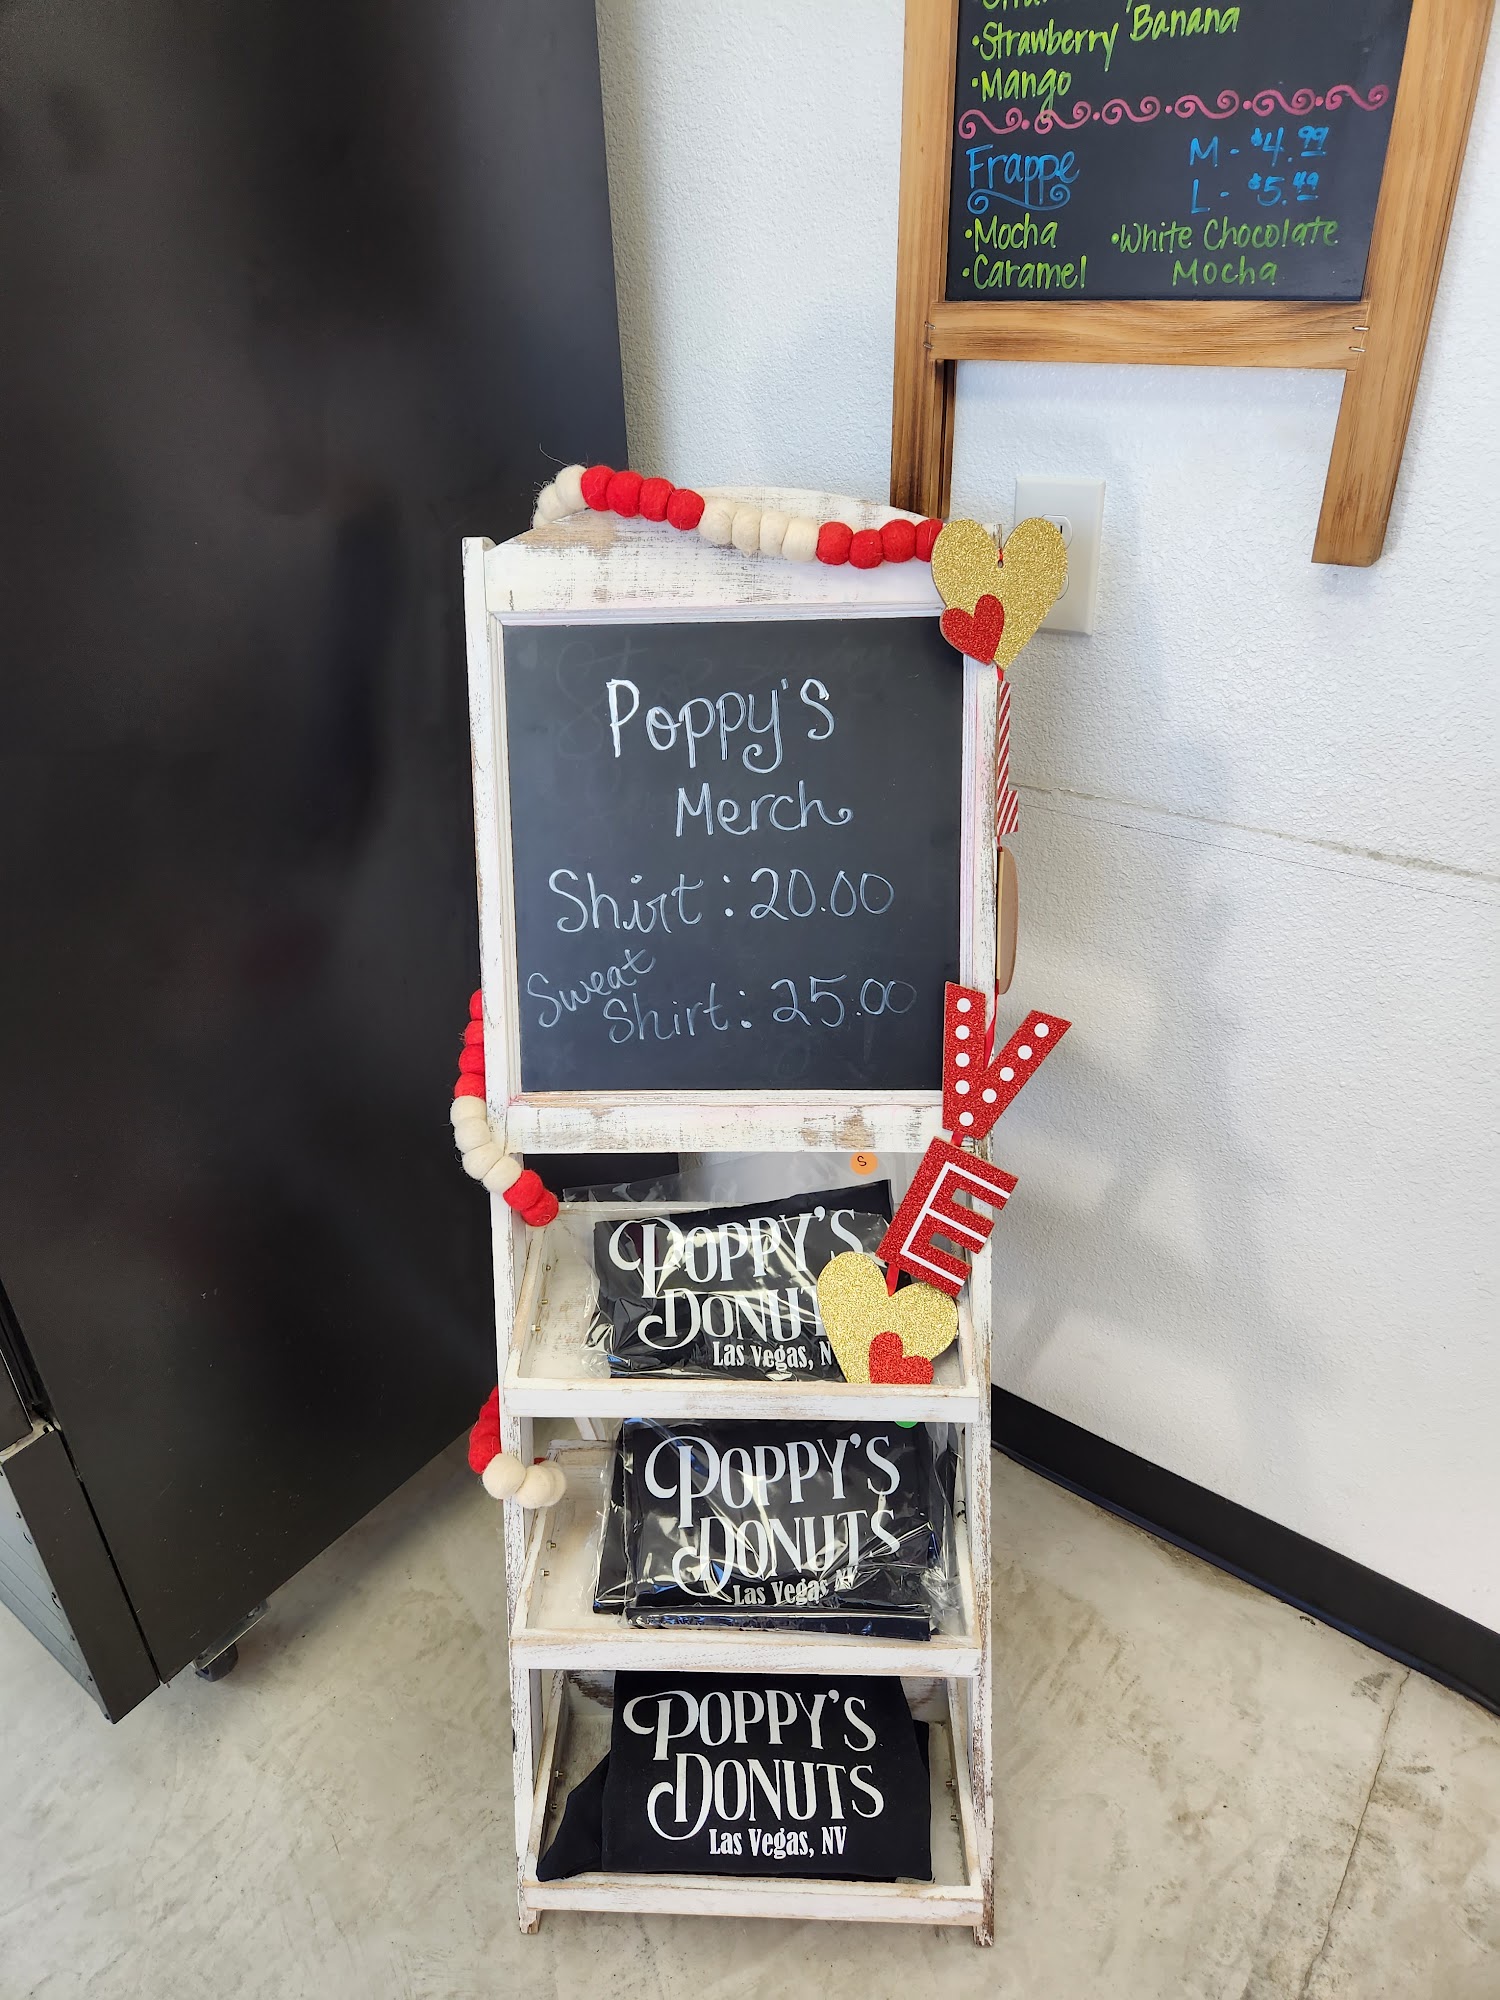 •Strawberry Banana
•Mango
Frappe
M - $4.99
L - $5.49
•Mocha
•White Chocolate
Mocha
•Caramel
Poppy's
Merch
Shirt: 20.00
Sweat
Shirt: 25.00
VE
S
POPPY'S
DONU
Las Vegas, N
POPPY'S
DONUTS
Las Vegas NV
POPPY'S
DONUTS
Las Vegas, NV